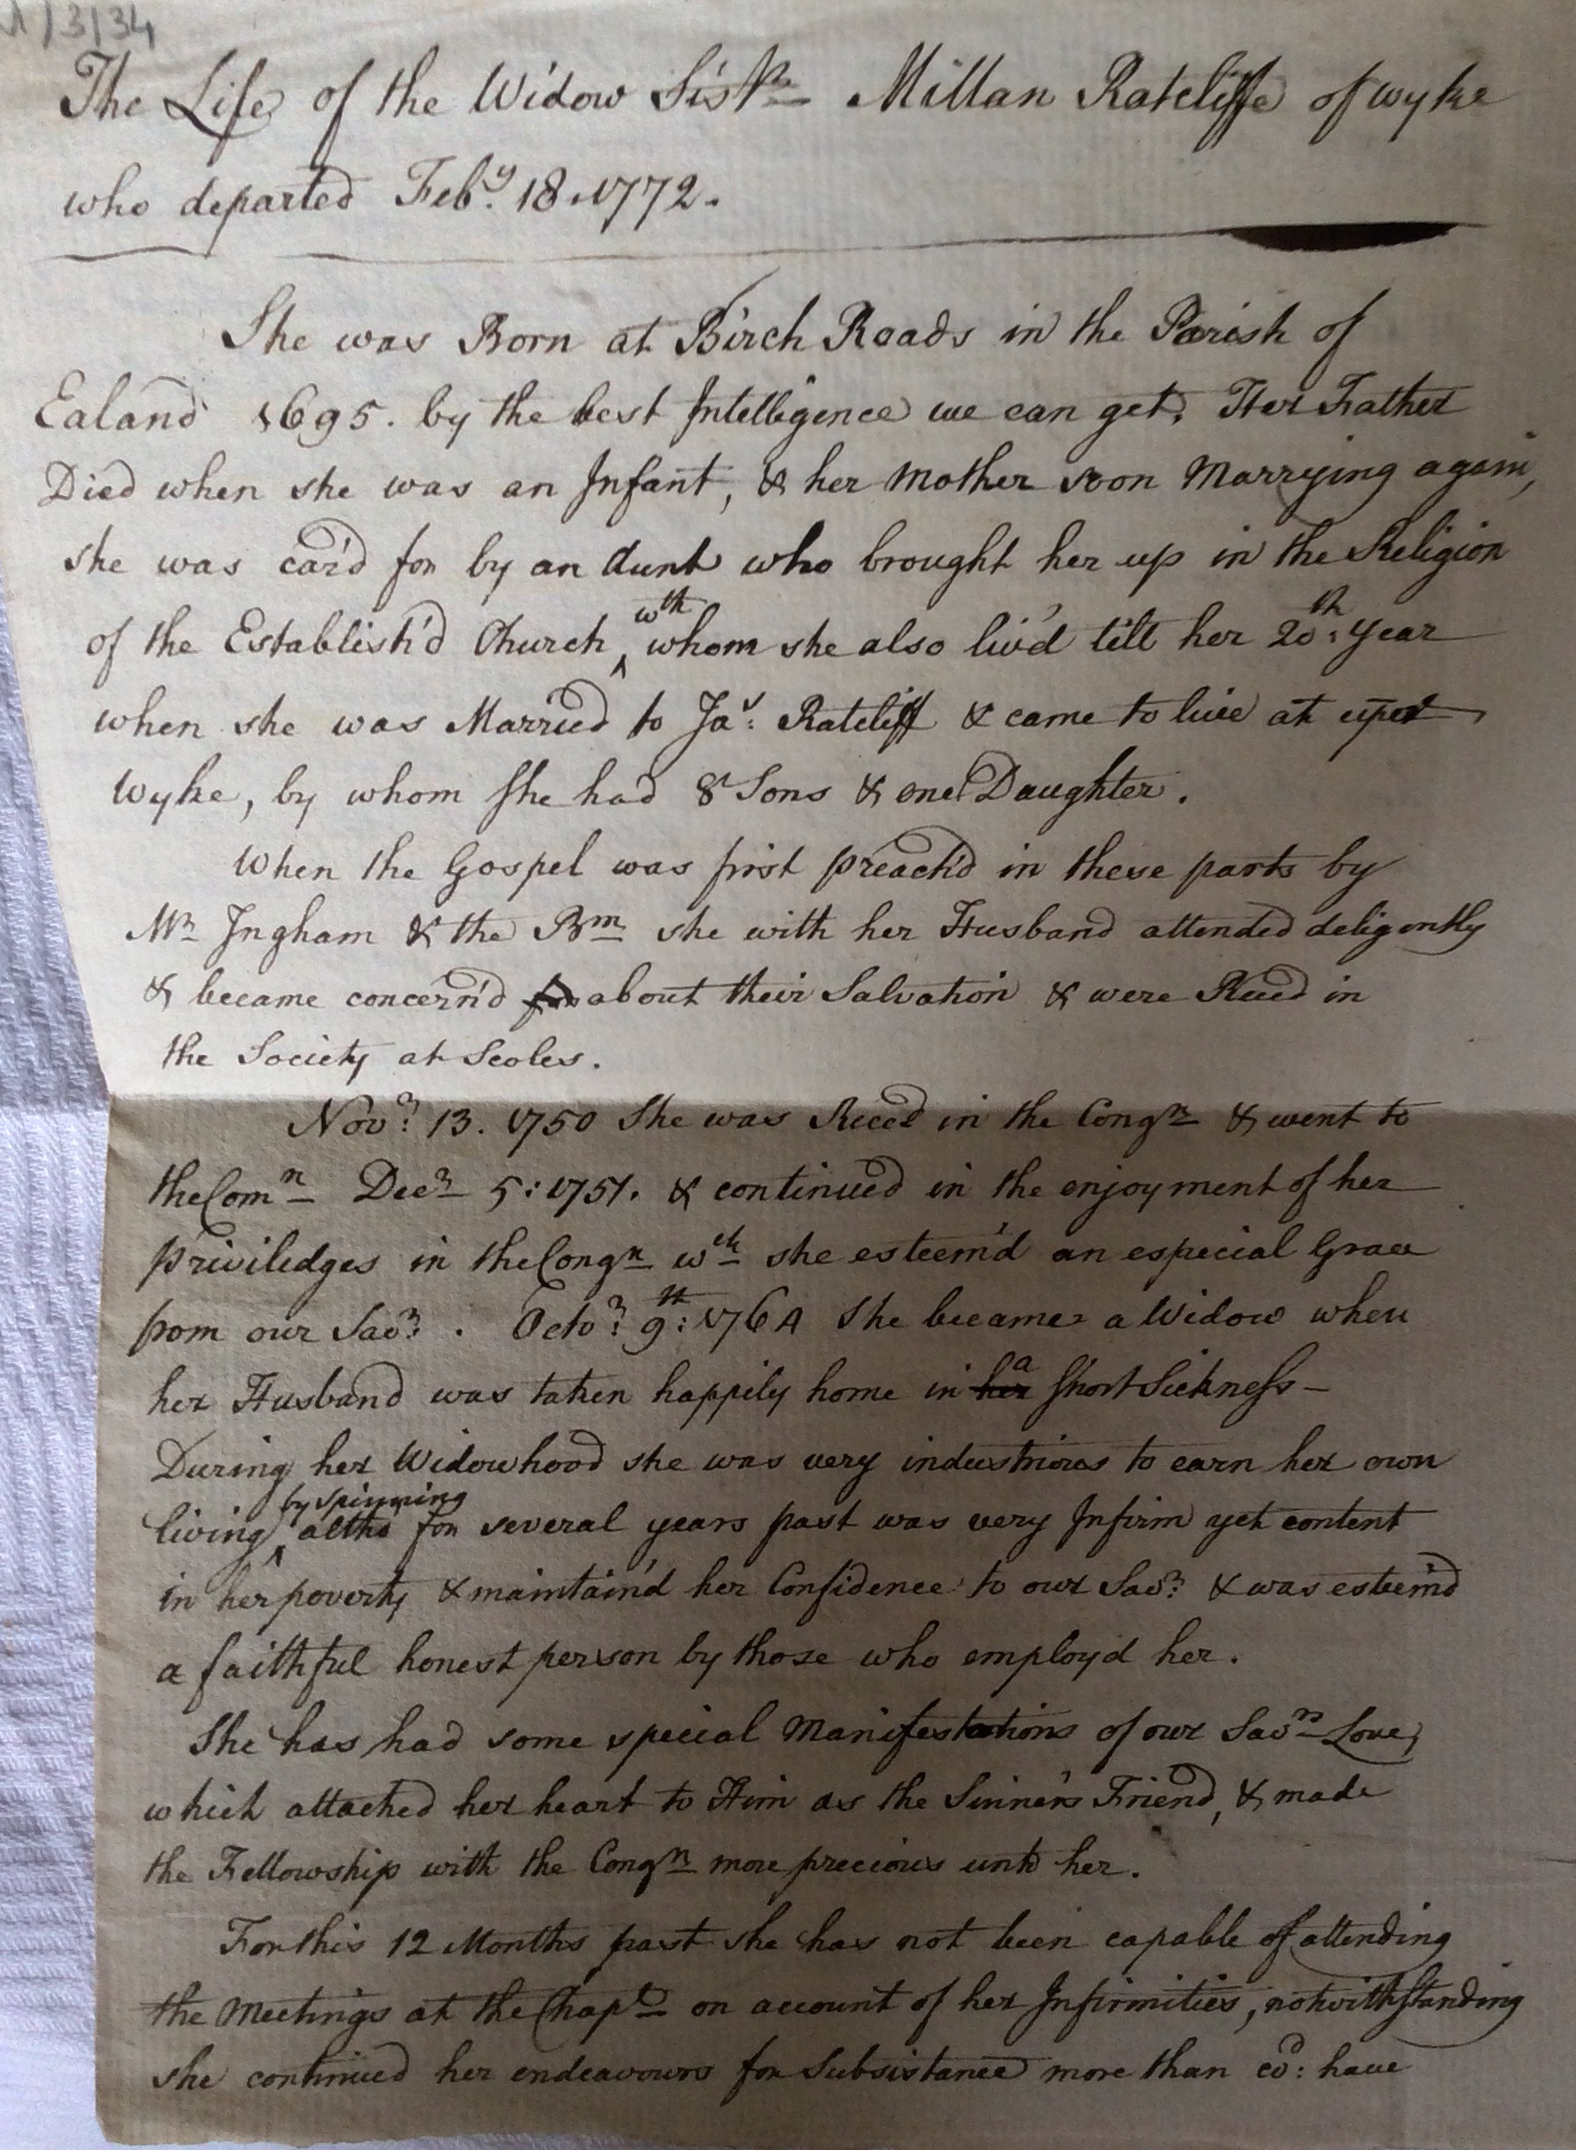 /3/34
The Life of the Widow Sistr Millan Ratcliffe of wyke
who departed Feby. 18. 1772.
She was Born at Birch Roads in the Parish of
Ealand 1695. by the best Intelligence we can get. Her Father
Died when she was an Infant, & her Mother soon Marrying again,
she was car'd for by an Aunt who brought her up in the Religion
of the Establish'd Church ^ wth whom she also liv'd till her 20th: Year
when she was Married to Jas: Ratcliff & came to live at uper
Wyke, by whom She had 8 Sons & one Daughter.
When the Gospel was first preach'd in these parts by
Mr Ingham & the Brn she with her Husband attended deligently
& became concern'd for about their Salvation & were Recd in
the Society at Scoles.
Novr: 13. 1750 She was Recd in the Congn & went to
the Comn Decr 5: 1751. & continued in the enjoyment of her
priviledges in the Congn wch she esteem'd an especial Grace
from our Savr: . Octor: 9th: 1764 She became a Widow when
her Husband was taken happily home in her a Short Sickness –
During her Widowhood she was very industrious to earn her own
living ^ by spinning altho' for several years past was very Infirm yet content
in her poverty & maintain'd her Confidence to our Savr: & was esteem'd
a faithful honest person by those who employ'd her.
She has had some special Manifestations of our Savrs Love,
which attached her heart to Him as the Sinner's Friend, & made
the Fellowship with the Congn more precious unto her.
For this 12 Months past she has not been capable of attending
the Meetings at the Chapl on account of her Infirmities, notwithstanding
she continued her endeavours for Subsistance more than cd: have